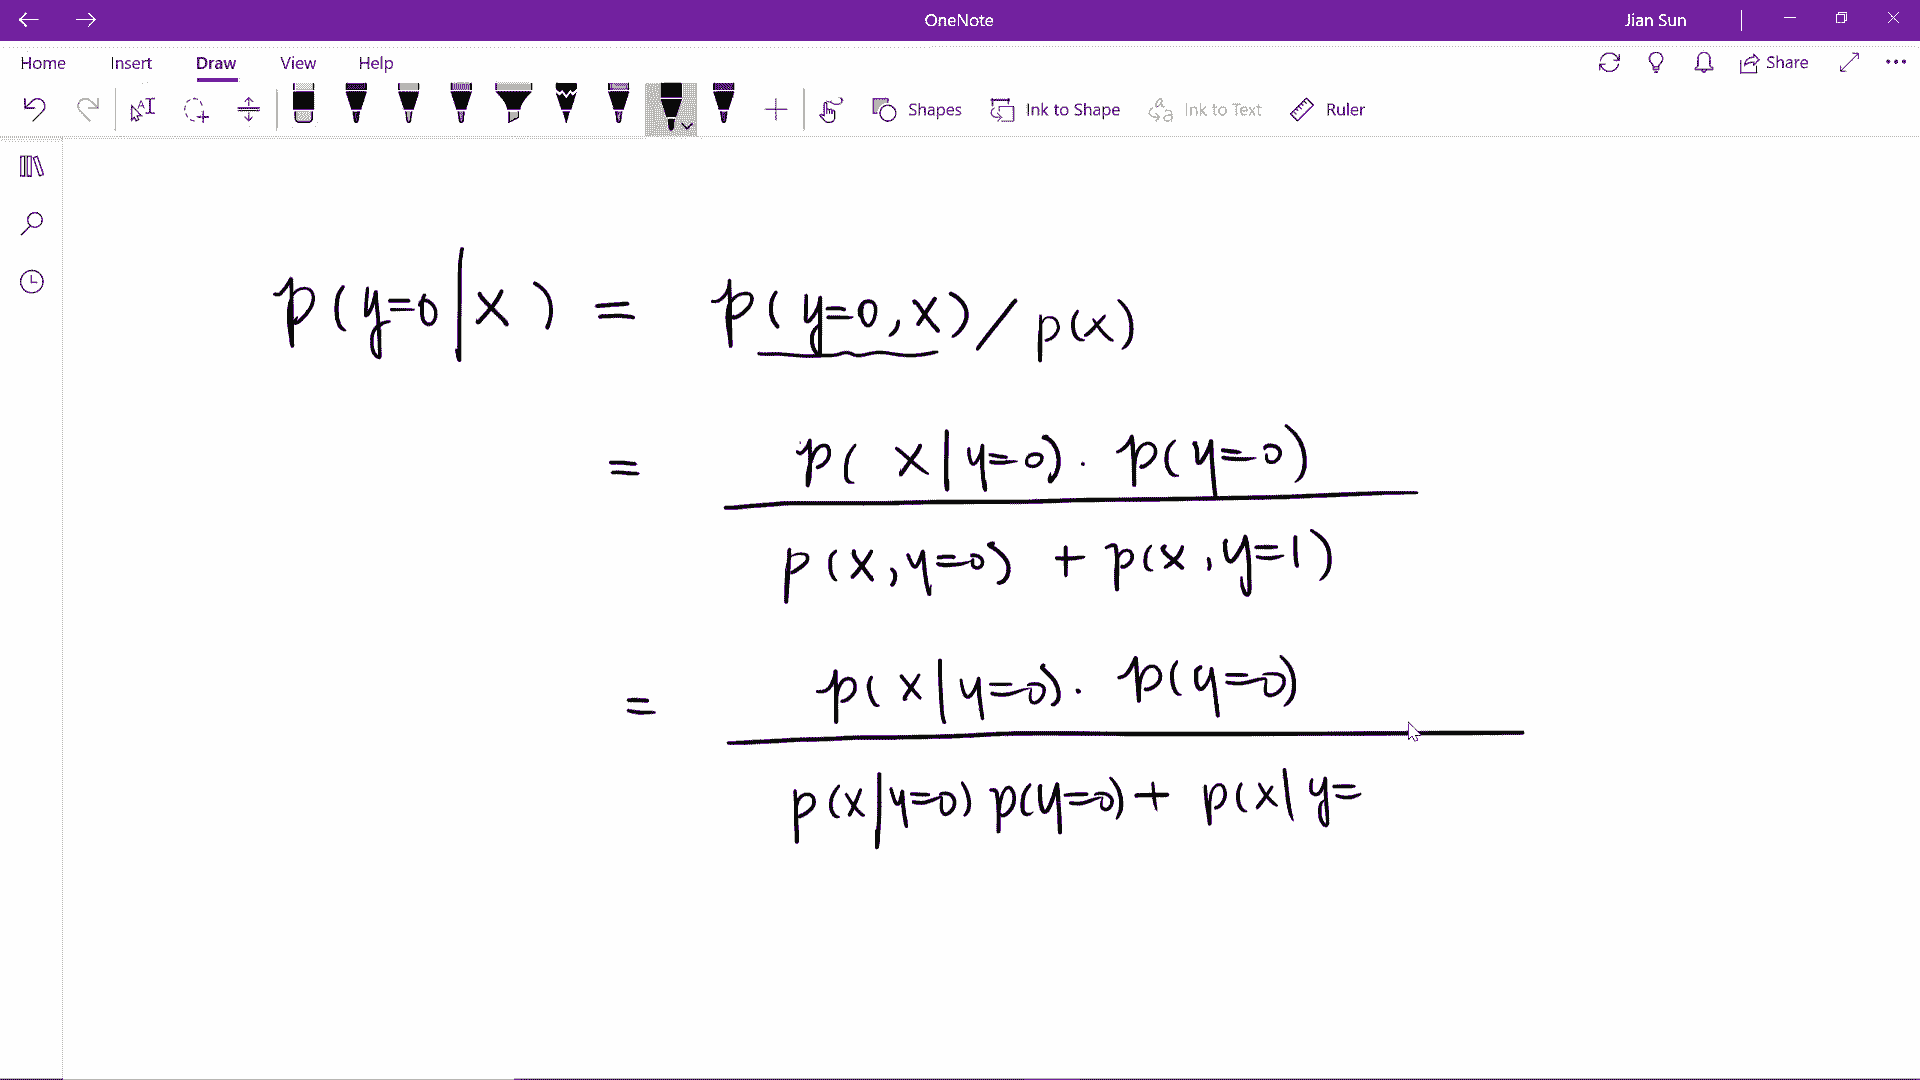 OneNote
Jian Sun
Home Insert Draw View Help
Share
Shapes Ink to Shape Ink to Text Ruler
p(y=0|x) = p(y=0,x)/p(x)
= p(x|y=0)·p(y=0)
p(x,y=0) + p(x,y=1)
= p(x|y=0)·p(y=0)
p(x|y=0)p(y=0)+p(x|y=